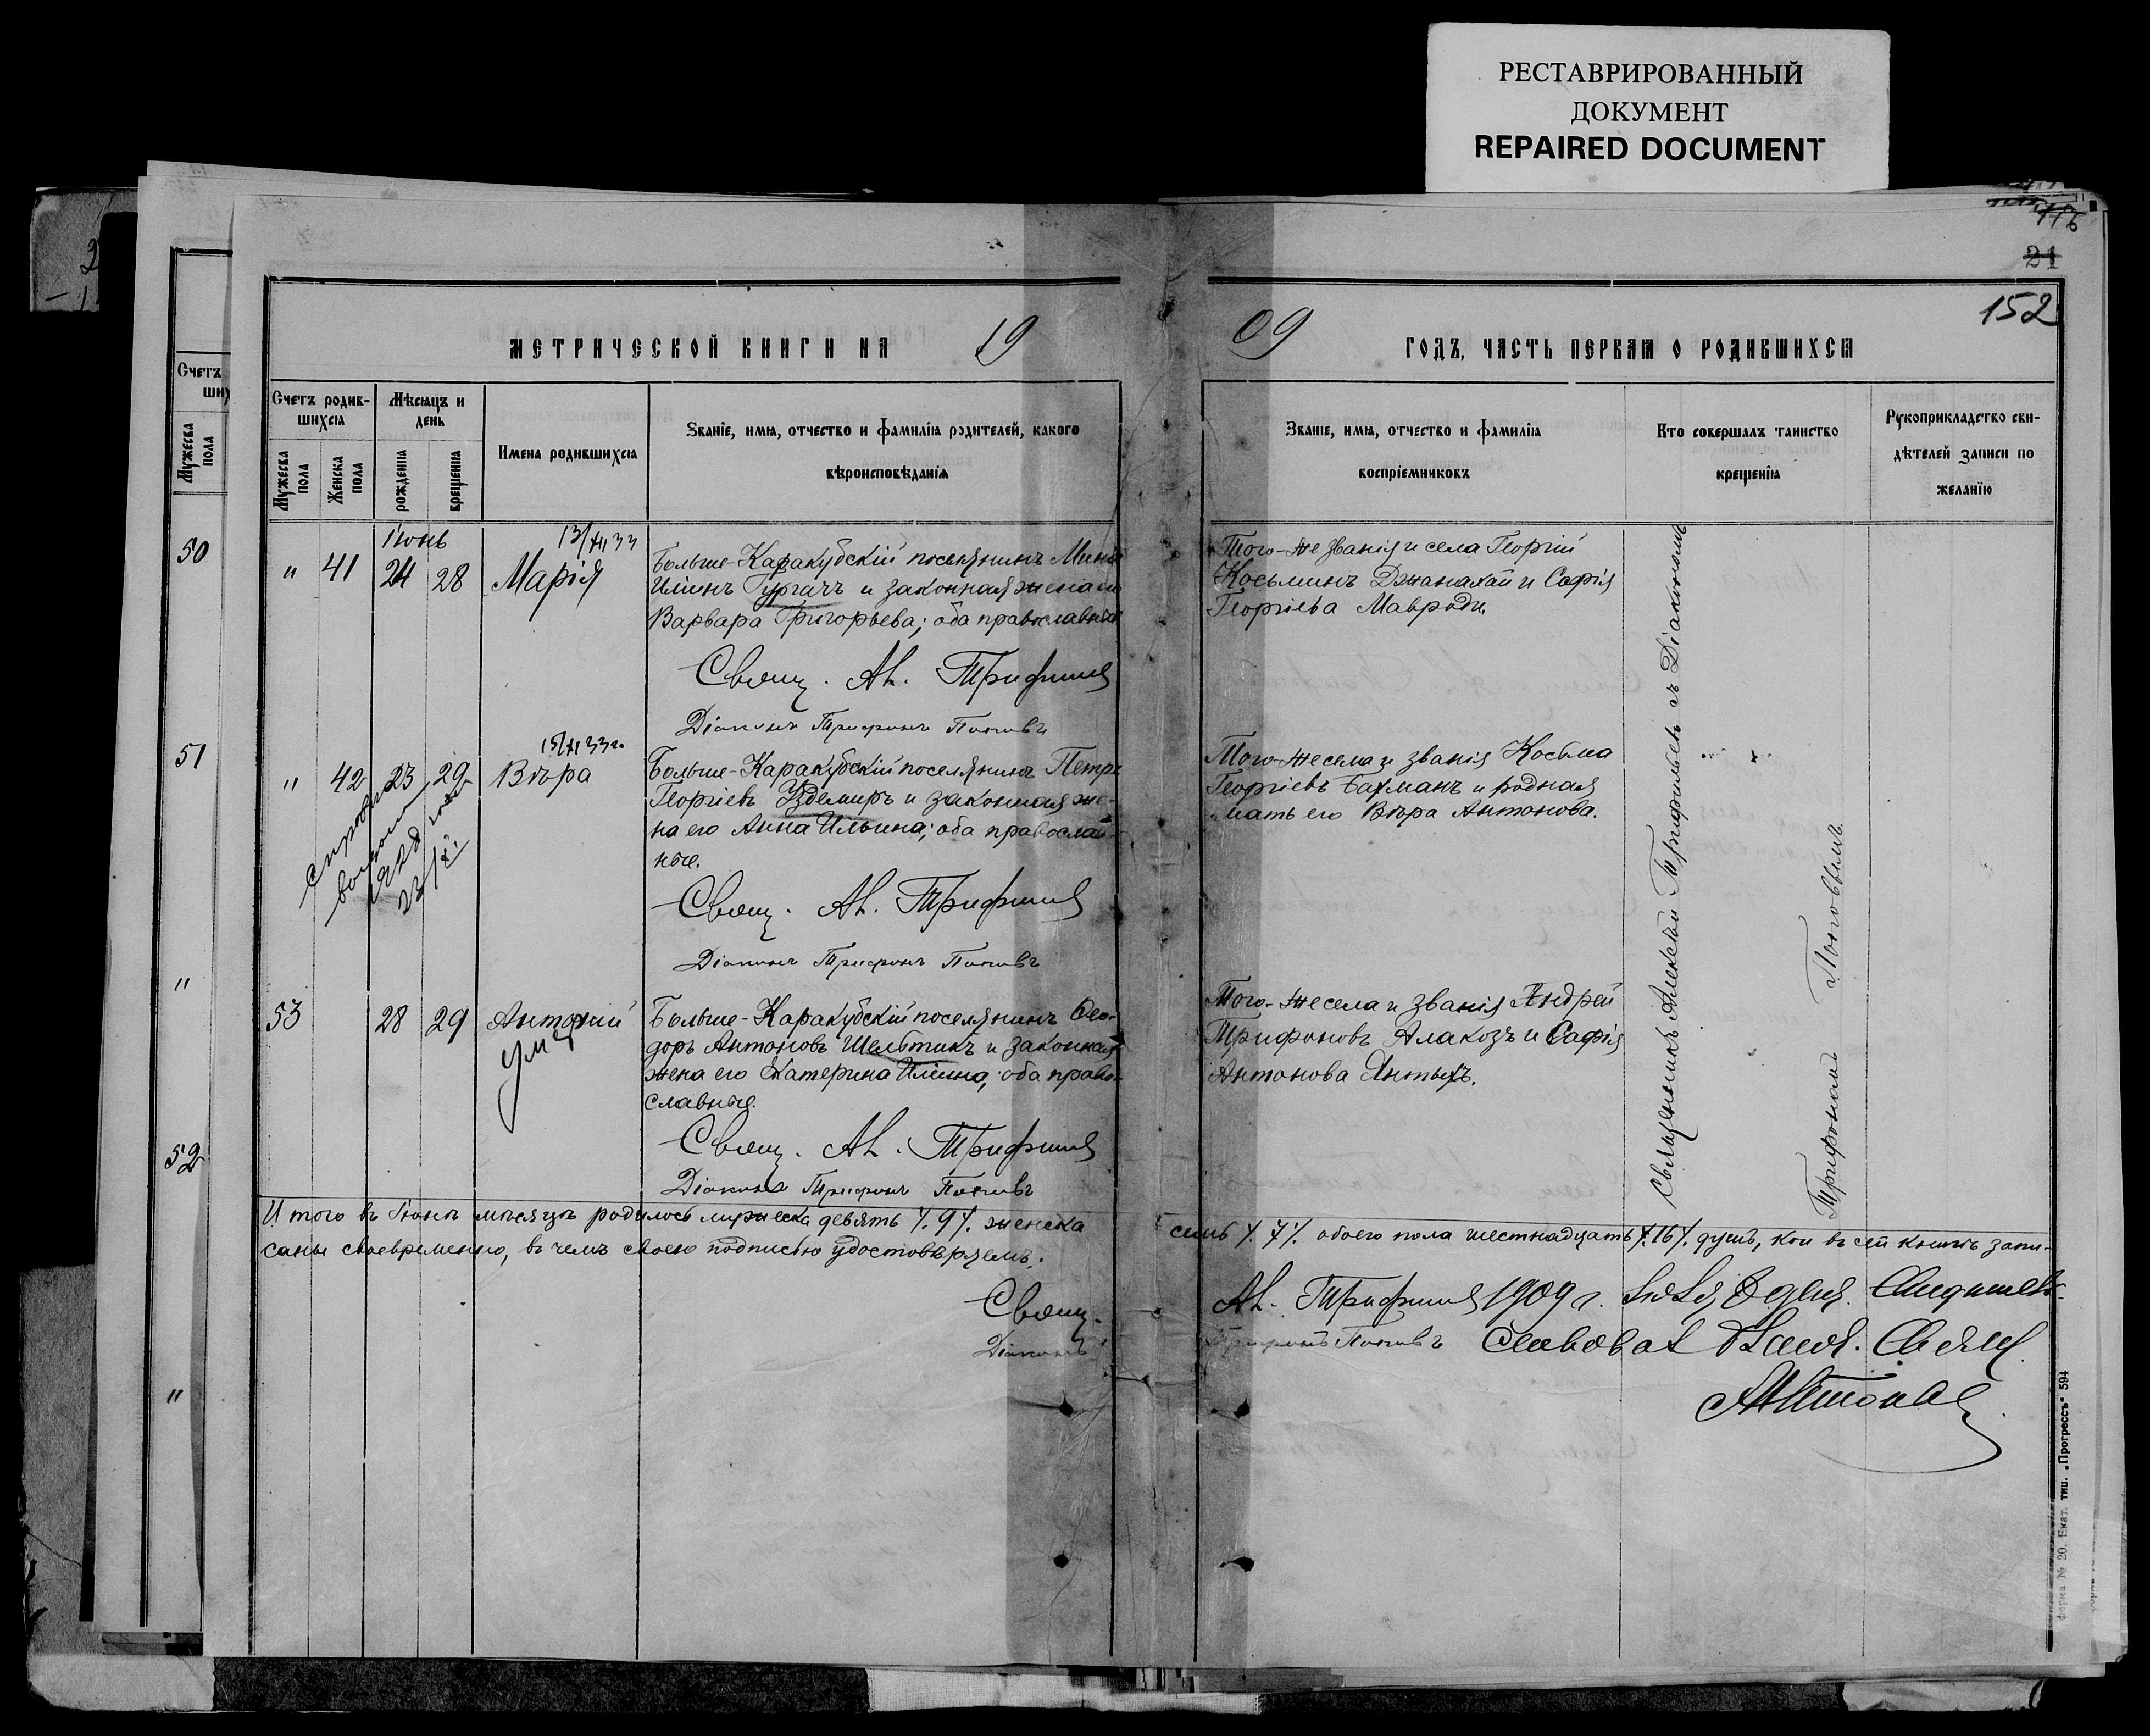 РЕСТАВРИРОВАННЫЙ
ДОКУМЕНТ
REPAIRED DOCUMENT
21
152
МЕТРИЧЕСКОЙ КНИГИ НА 19
09 ГОДЪ, ЧАСТЬ ПЕРВАЯ О РОДИВШИХСЯ
Счетъ родив-
шихся
Мужеска пола
Женска пола
Мѣсяцъ и
день
рожденія
крещенія
Имена родившихся
Званіе, имя, отчество и фамилія родителей, какого
вѣроисповѣданія
Званіе, имя, отчество и фамилія
воспріемниковъ
Кто совершалъ таинство
крещенія
Рукоприкладство сви-
дѣтелей записи по
желанію
Счетъ
ших
Мужеска
пола
50
51
"
52
"
Іюнь
13/XII 33
" 41 24 28 Марія
Больше-Каракубскій поселянинъ Мина
Иліинъ Гургачъ и законная жена его
Варвара Григорьева; оба православные
Свящ. Ал. Трифильевъ
Діаконъ Трифонъ Поповъ
Того-же званія и села Георгій
Косьминъ Джанахай и Софія
Георгіева Мавроди.
15/XI 33 г.
" 42 23 29 Вѣра
Больше-Каракубскій поселянинъ Петръ
Георгіевъ Уздемиръ и законная же-
на его Анна Ильина; оба православ-
ные.
Свящ. Ал. Трифильевъ
Діаконъ Трифонъ Поповъ
Того-же села и званія Косьма
Георгіевъ Бахманъ и родная
мать его Вѣра Антонова.
53 28 29 Антоній
умер
Больше-Каракубскій поселянинъ Ѳео-
доръ Антоновъ Шелѣтикъ и законная
жена его Екатерина Иліина; оба право-
славные.
Свящ. Ал. Трифильевъ
Діаконъ Трифонъ Поповъ
Того-же села и званія Андрей
Трифоновъ Алакозъ и Софія
Антонова Янтыхъ.
Священникъ Алексѣй Трифильевъ съ Діакономъ
Трифономъ Поповымъ.
Итого въ Іюнѣ мѣсяцѣ родилось мужеска девять /.9/. женска
семь /.7/. обоего пола шестнадцать /.16/. душъ, кои въ сей книгѣ запи-
саны своевременно, въ чемъ своею подписью удостовѣряемъ.
Свящ. Ал. Трифильевъ
1909 г.
Діаконъ Трифонъ Поповъ
Форма № 20. Екат. тип. „Прогрессъ" 594